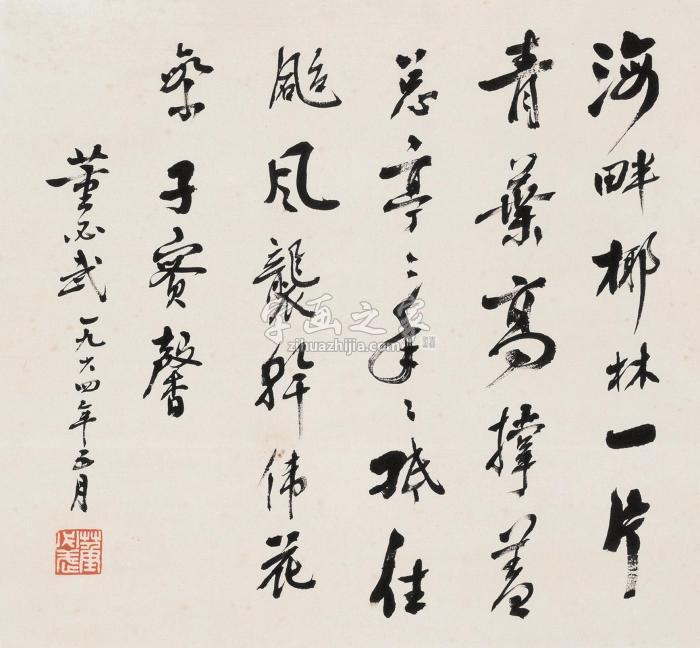 海畔椰林一片
青葉高撑盖
总亭々年々抵住
颱风襲幹伟花
繁子實馨
董必武 一九六四年月
董必武
字画之家
zihuazhijia.com